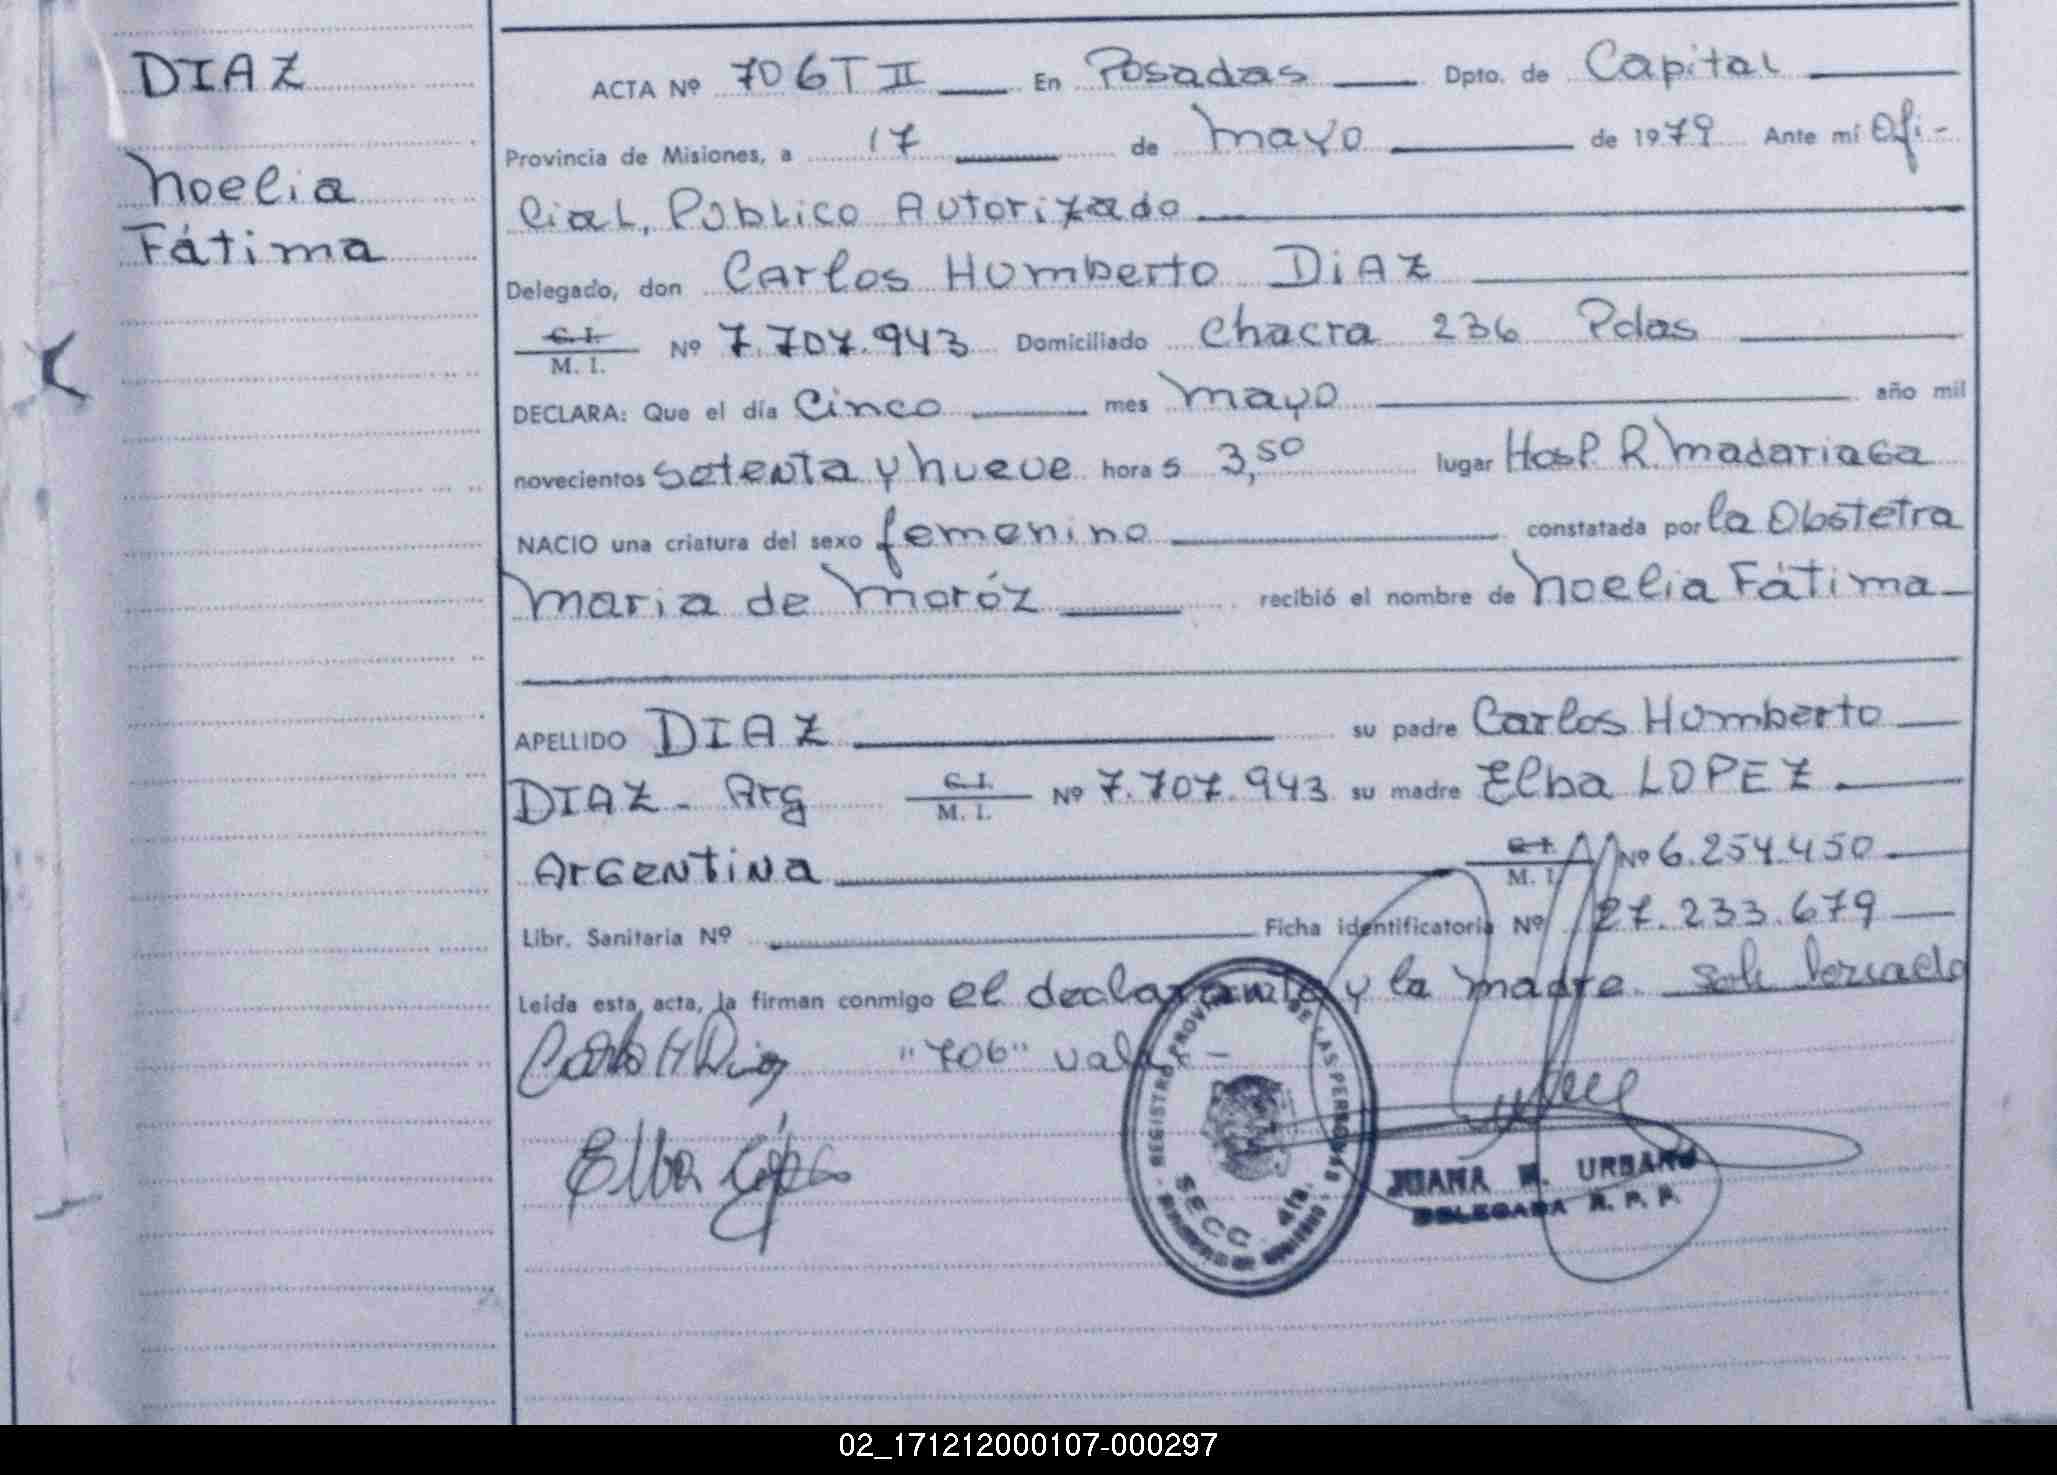 DIAZ
Noelia
Fátima
ACTA Nº 706 T II En Posadas Dpto. de Capital
Provincia de Misiones, a 17 de Mayo de 1979 Ante mí Ofi-
cial, Público Autorizado
Delegado, don Carlos Humberto DIAZ
C. I.
M. I. Nº 7.707.943 Domiciliado Chacra 236 Pdas
DECLARA: Que el día Cinco mes Mayo año mil
novecientos setenta y nueve hora s 3,50 lugar Hosp. R. Madariaga
NACIO una criatura del sexo femenino constatada por la Obstetra
Maria de Moróz recibió el nombre de Noelia Fátima
APELLIDO DIAZ su padre Carlos Humberto
DIAZ - Arg C. I.
M. I. Nº 7.707.943 su madre Elba LOPEZ
Argentina C. I.
M. I. Nº 6.254.450
Libr. Sanitaria Nº Ficha identificatoria Nº 27.233.679
Leída esta acta, la firman conmigo el declarante y la madre.
Carlos H Diaz "706" vale -
Elba López
REGISTRO PROVINCIAL DE LAS PERSONAS
SECC. 4ta.
JUANA URBANO
DELEGADA R. P. P.
02_171212000107-000297